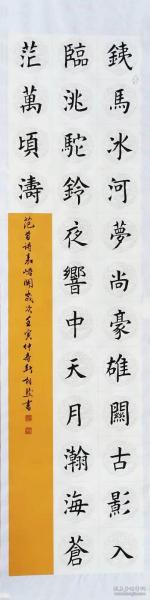 鐵馬冰河夢尚豪雄關古影入
臨洮駝鈴夜響中天月瀚海蒼
茫萬頃濤
詩嘉峪關歲次壬寅仲春
書